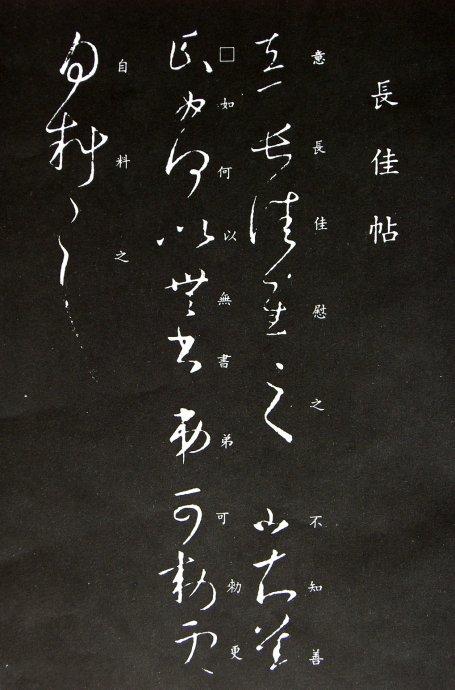 長佳帖
意長佳慰之不知善
□如何以無書弟可勑更
自料之